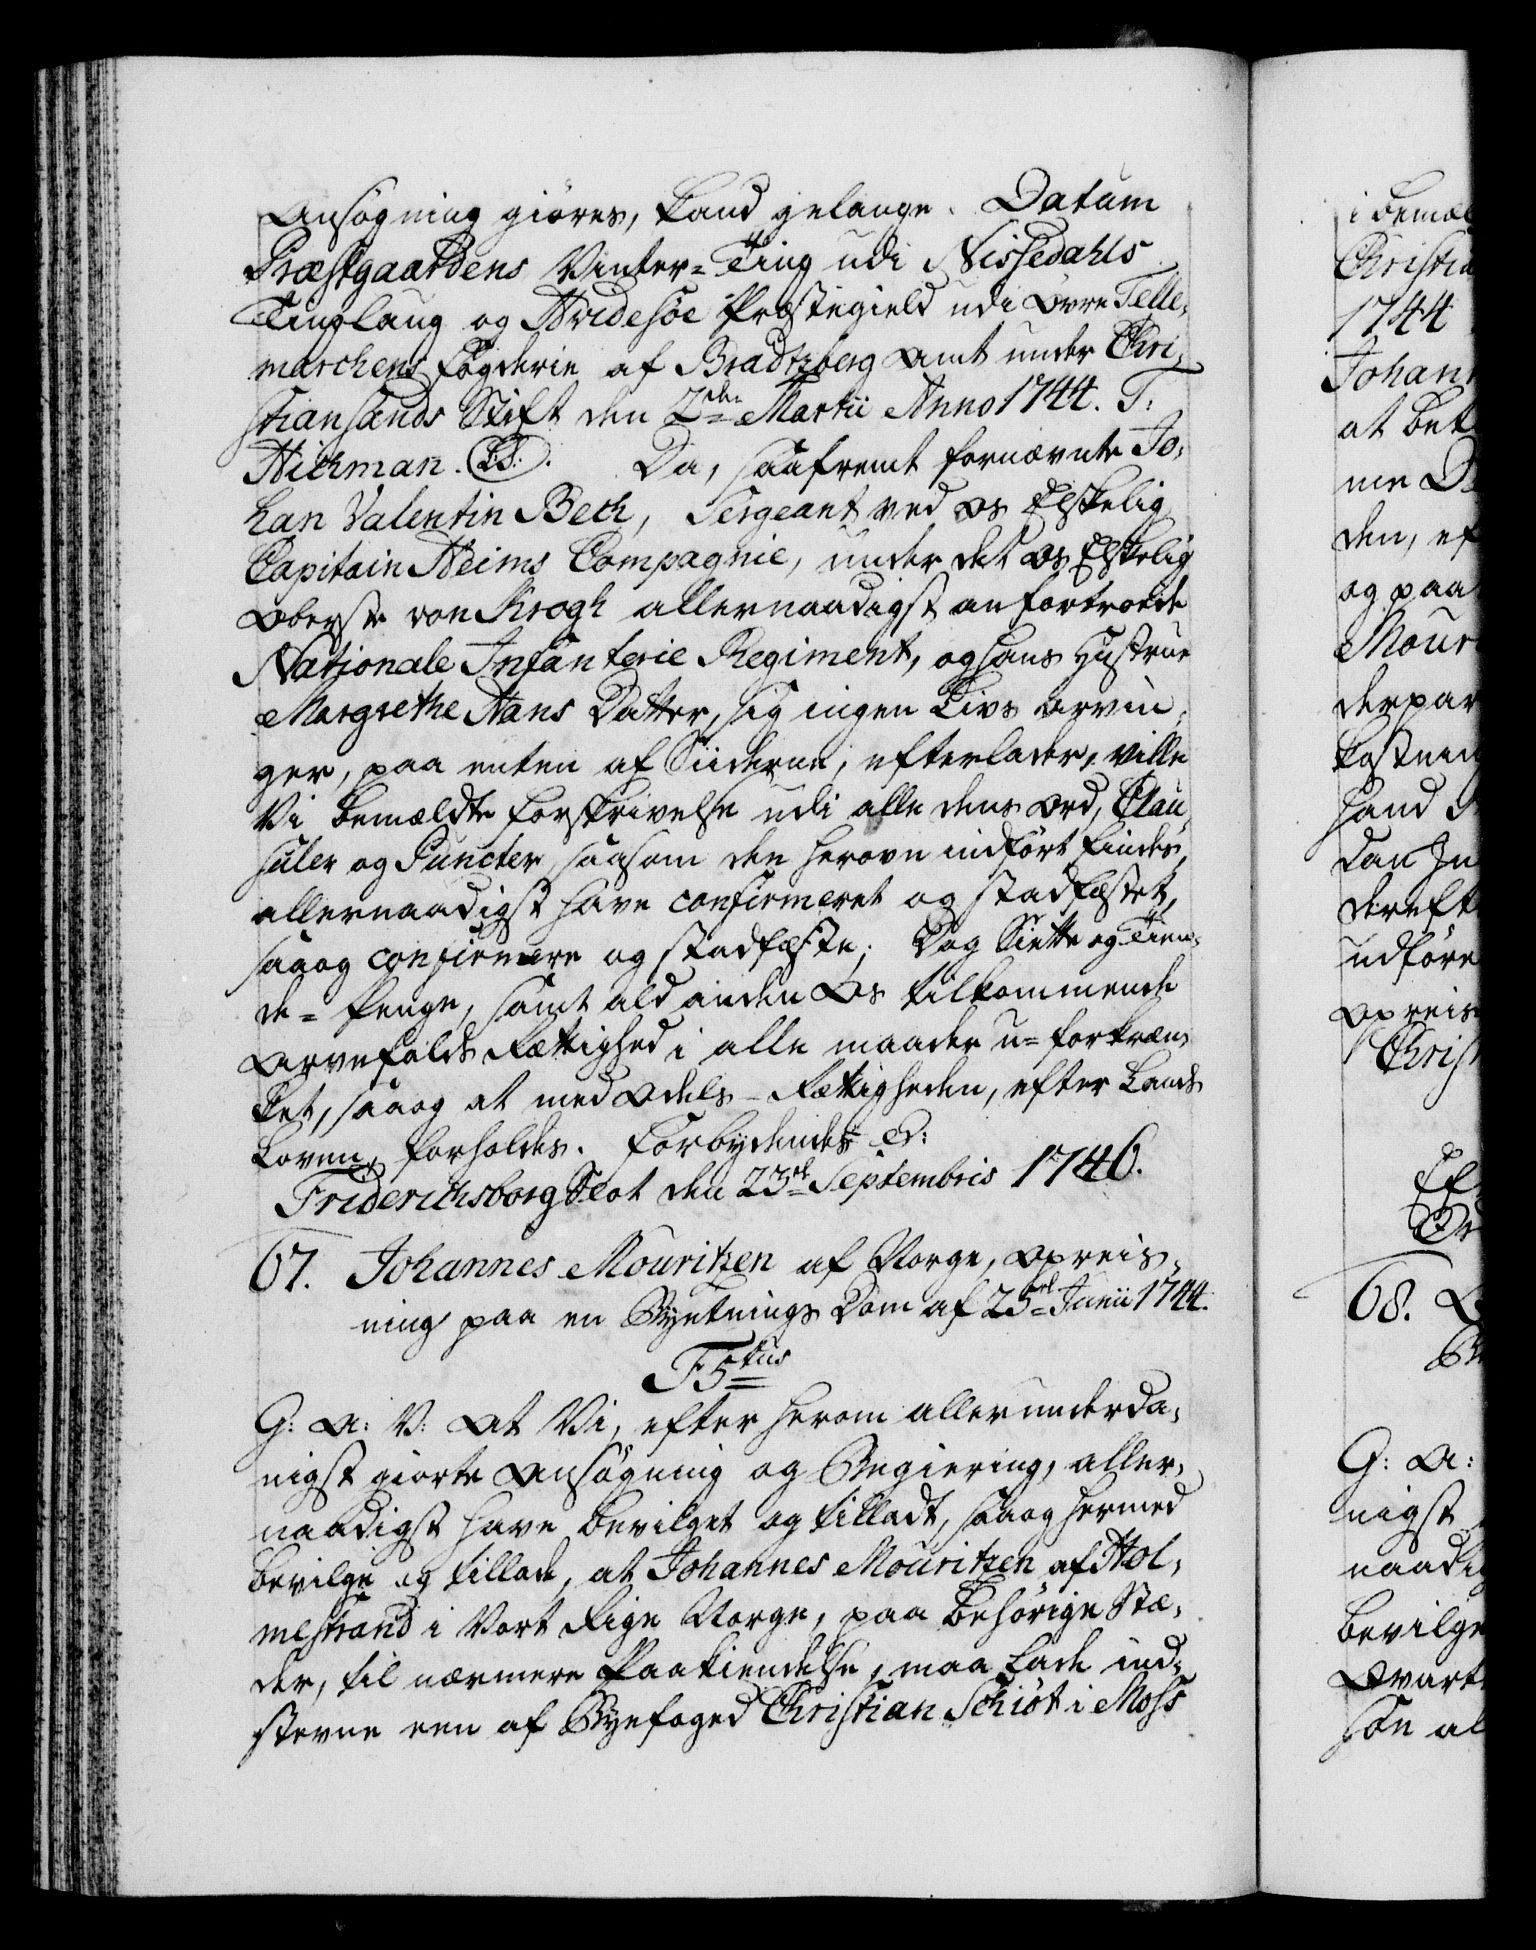 Ansøgning giøres, kand gelange. Datum
Præstgaardens Vinter-Ting udi Nissedahls
Tinglaug og Hvidesøe Præstegield udi Øvre Telle-
marchens Fogderie af Bradtzberg Amt under Chri-
stiansands Stift den 2den Martii Anno 1744. T:
Hichman. (L.S.). Da, saafremt fornævnte Jo-
han Valentin Bech, Sergeant ved Os Elskelig
Capitain Heims Compagnie, under det Os Elskelig
Oberste von Krogh allernaadigst anfortroede
Nationale Infanterie Regiment, og hans Hustrue
Margrethe Hans Datter, sig ingen Livs Arvin-
ger, paa enten af Siiderne, efterlader, ville
Vi bemældte Forskrivelse udi alle dens Ord, Clau-
suler og Puncter, saasom den herovn indført findes,
allernaadigst have confirmeret og stadfæstet,
saaog confirmere og stadfæste; Dog Siette og Tien-
de-Penge, samt ald anden Os tilkommende
Arvefalds Rettighed i alle maader u-forkræn-
ket, saaog at med Odels-Rettigheden, efter Lands
Loven, forholdes. Forbydendes &:
Friderichsborg Slot den 23de Septembris 1746.
67. Johannes Mouritzen af Norge, Opreis-
ning paa en Byetings Dom af 25de Junii 1744.
F5tus
G: A: V: At Vi, efter herom allerunderda-
nigst giorte Ansøgning og Begiering, aller-
naadigst have bevilget og tilladt, saaog hermed
bevilge og tillade, at Johannes Mouritzen af Hol-
mestrand i Vort Rige Norge, paa behørige Stæ-
der, til nærmere Paakiendelse, maa lade ind-
stevne een af Byefoged Christian Schiøt i Moss
i bemæl
Christia
1744
Johann
at bet
me D
den, ef
og paa
Mour
derpaa
Kostnin
hand
Dan
dereft
udføre
Opreis
Christ
68.
G: A:
nigst
naadig
bevilge
Søn al